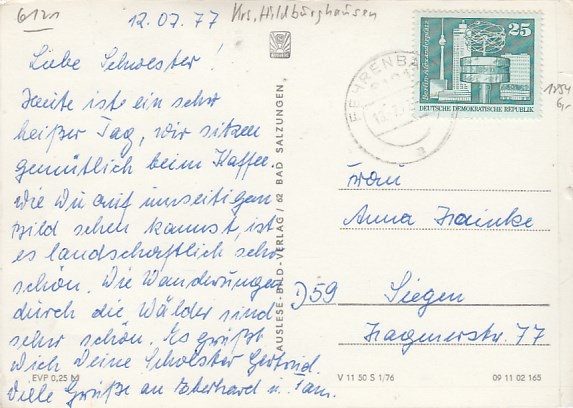 6121
12.07.77 Krs. Hildburghausen
Liebe Schwester!
Heute ist ein sehr
heißer Tag, wir sitzen
gemütlich beim Kaffee.
Wie Du auf umseitigen
Bild sehen kannst, ist
es landschaftlich sehr
schön. Die Wanderungen
durch die Wälder sind
sehr schön. Es grüßt
Dich Deine Schwester Gertrud.
Viele Grüße an Eberhard u. Fam.
EVP 0,25 M
AUSLESE-BILD-VERLAG · 62 BAD SALZUNGEN,
FEHRENBA
a
25
Berlin-Alexanderplatz
DEUTSCHE DEMOKRATISCHE REPUBLIK
1854
Gr
Frau
Anna Hainke
D59 Siegen
Hagenerstr. 77
V 11 50 S 1/76 09 11 02 165